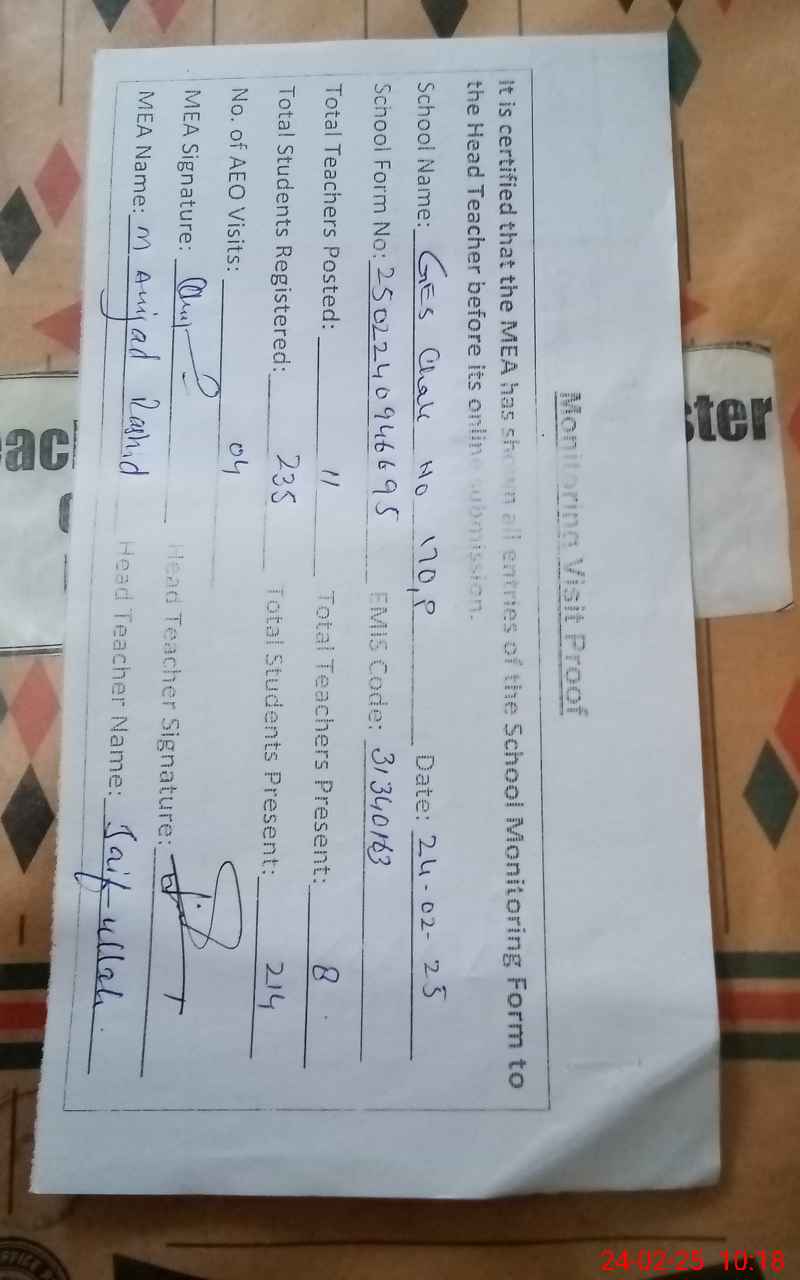 Monitoring Visit Proof
It is certified that the MEA has shown all entries of the School Monitoring Form to
the Head Teacher before its online submission.
School Name: GES Chak No 170,P Date: 24-02-25
School Form No: 250224094669 5 EMIS Code: 31340163
Total Teachers Posted: 11 Total Teachers Present: 8
Total Students Registered: 235 Total Students Present: 214
No. of AEO Visits: 04
MEA Signature: Head Teacher Signature:
MEA Name: M Amjad Rashid Head Teacher Name: Saif ullah
ster
each
24-02-25 10:18